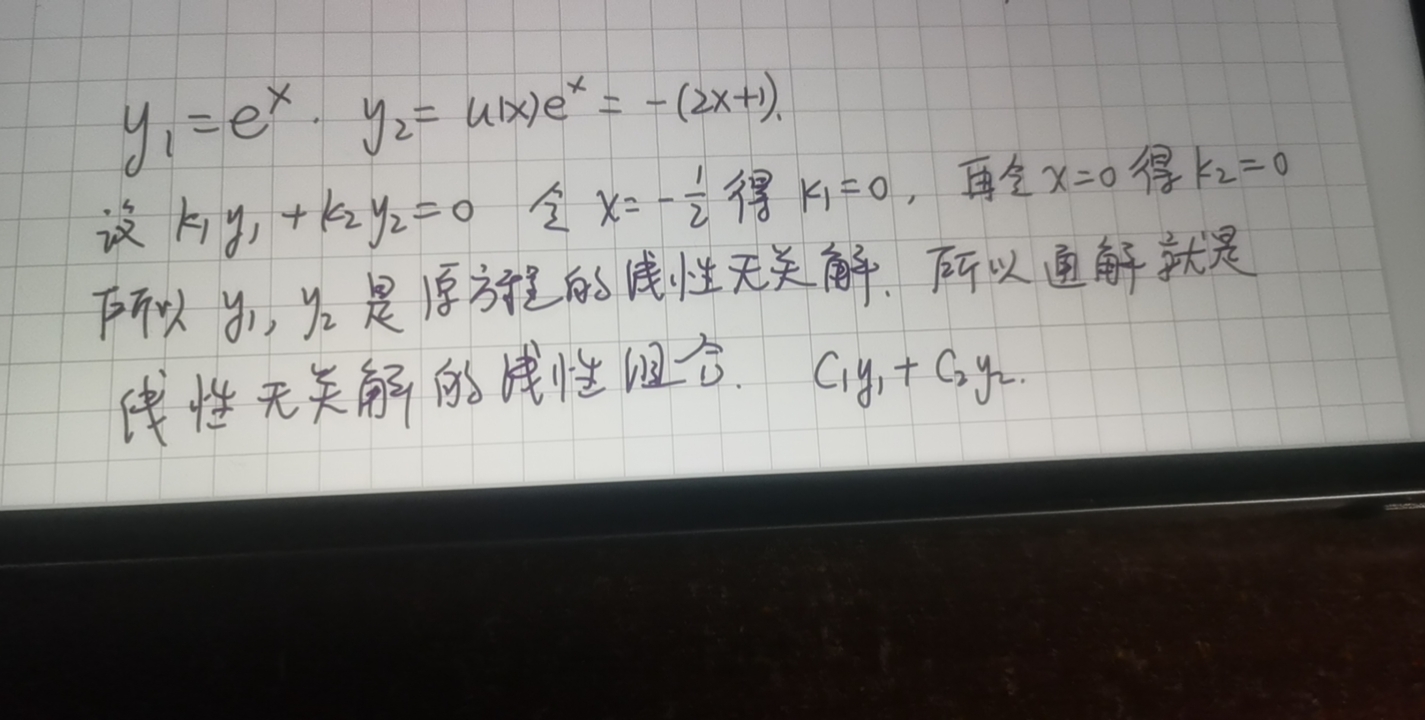 y₁=eˣ. y₂= u(x)eˣ = -(2x+1).
设 k₁y₁ + k₂y₂=0 令 x=-1/2 得 k₁=0, 再令 x=0 得 k₂=0
所以 y₁, y₂ 是原方程的线性无关解. 所以通解就是
线性无关解的线性组合. C₁y₁+C₂y₂.